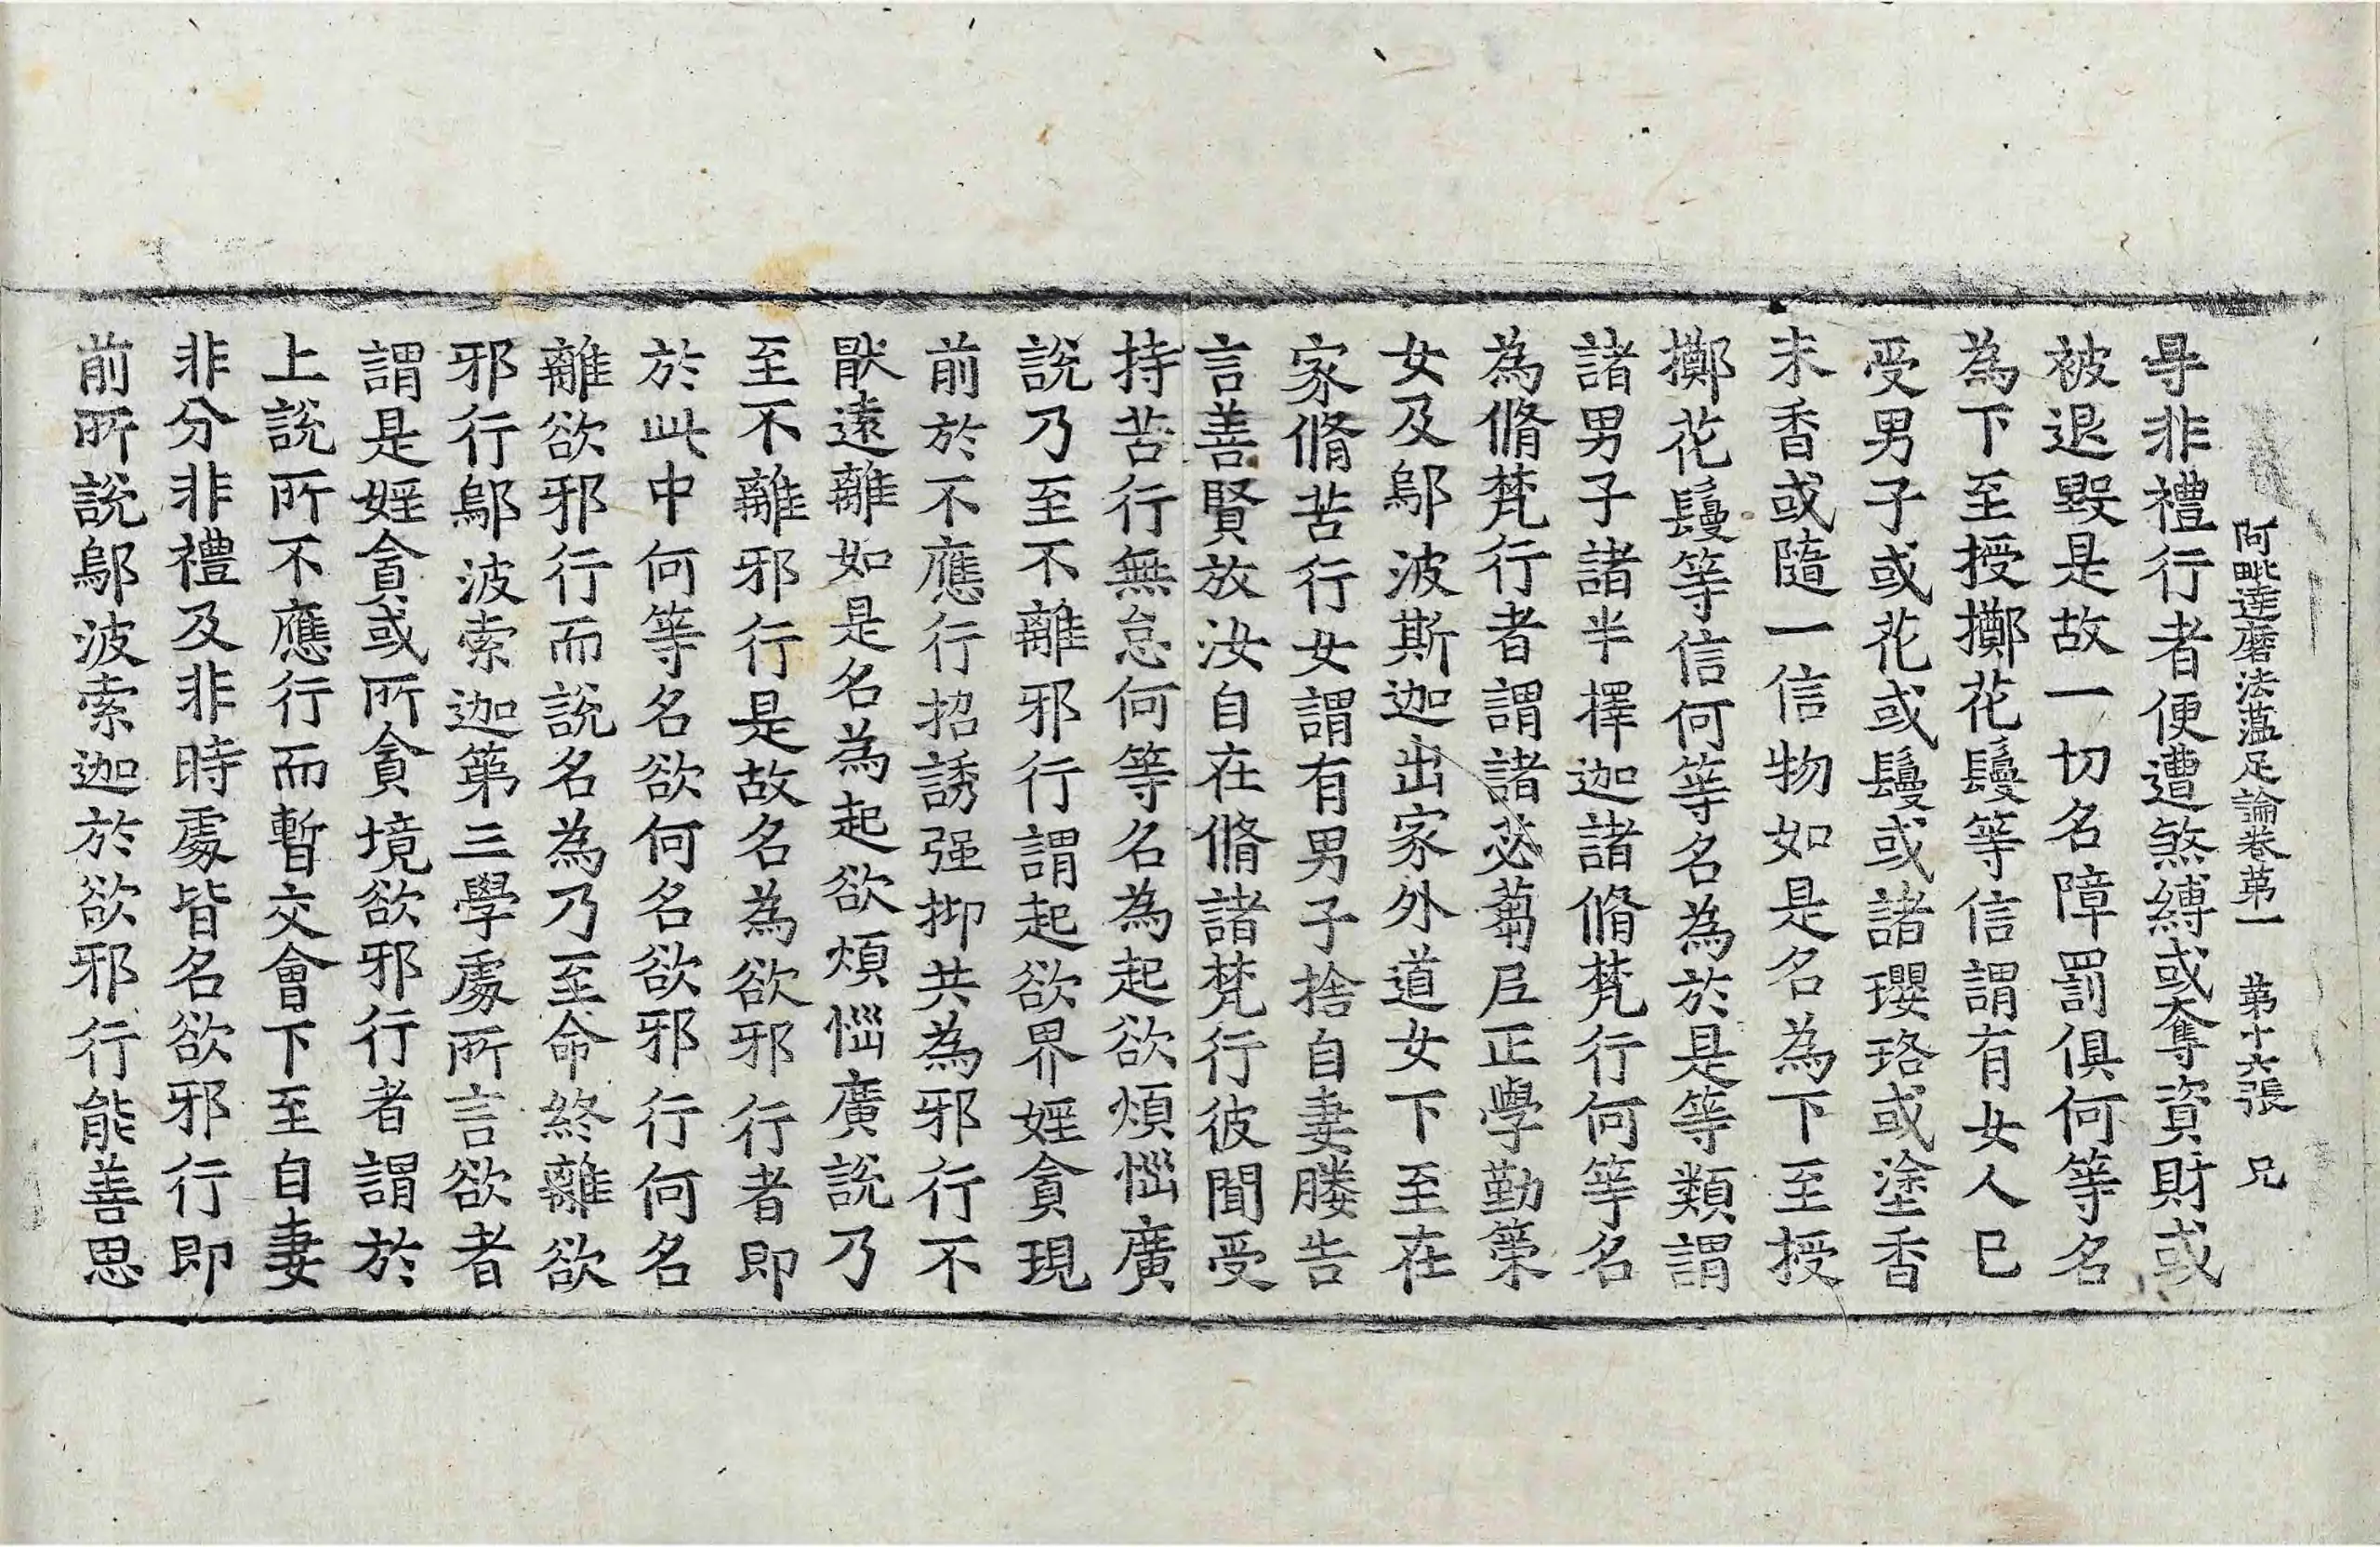 阿毗達磨法蘊足論卷第一　第十六張　兄
㝵非禮行者便遭煞縛或奪資財或
被退毀是故一切名障罰俱何等名
為下至授擲花鬘等信謂有女人已
受男子或花或鬘或諸瓔珞或塗香
末香或隨一信物如是名為下至授
擲花鬘等信何等名為於是等類謂
諸男子諸半擇迦諸脩梵行何等名
為脩梵行者謂諸苾蒭尼正學勤策
女及鄔波斯迦出家外道女下至在
家脩苦行女謂有男子捨自妻媵告
言善賢放汝自在脩諸梵行彼聞受
持苦行無怠何等名為起欲煩惱廣
說乃至不離邪行謂起欲界婬貪現
前於不應行招誘强抑共為邪行不
猒遠離如是名為起欲煩惱廣說乃
至不離邪行是故名為欲邪行者即
於此中何等名欲何名欲邪行何名
離欲邪行而說名為乃至命終離欲
邪行鄔波索迦第三學處所言欲者
謂是婬貪或所貪境欲邪行者謂於
上說所不應行而暫交會下至自妻
非分非禮及非時處皆名欲邪行即
前所說鄔波索迦於欲邪行能善思